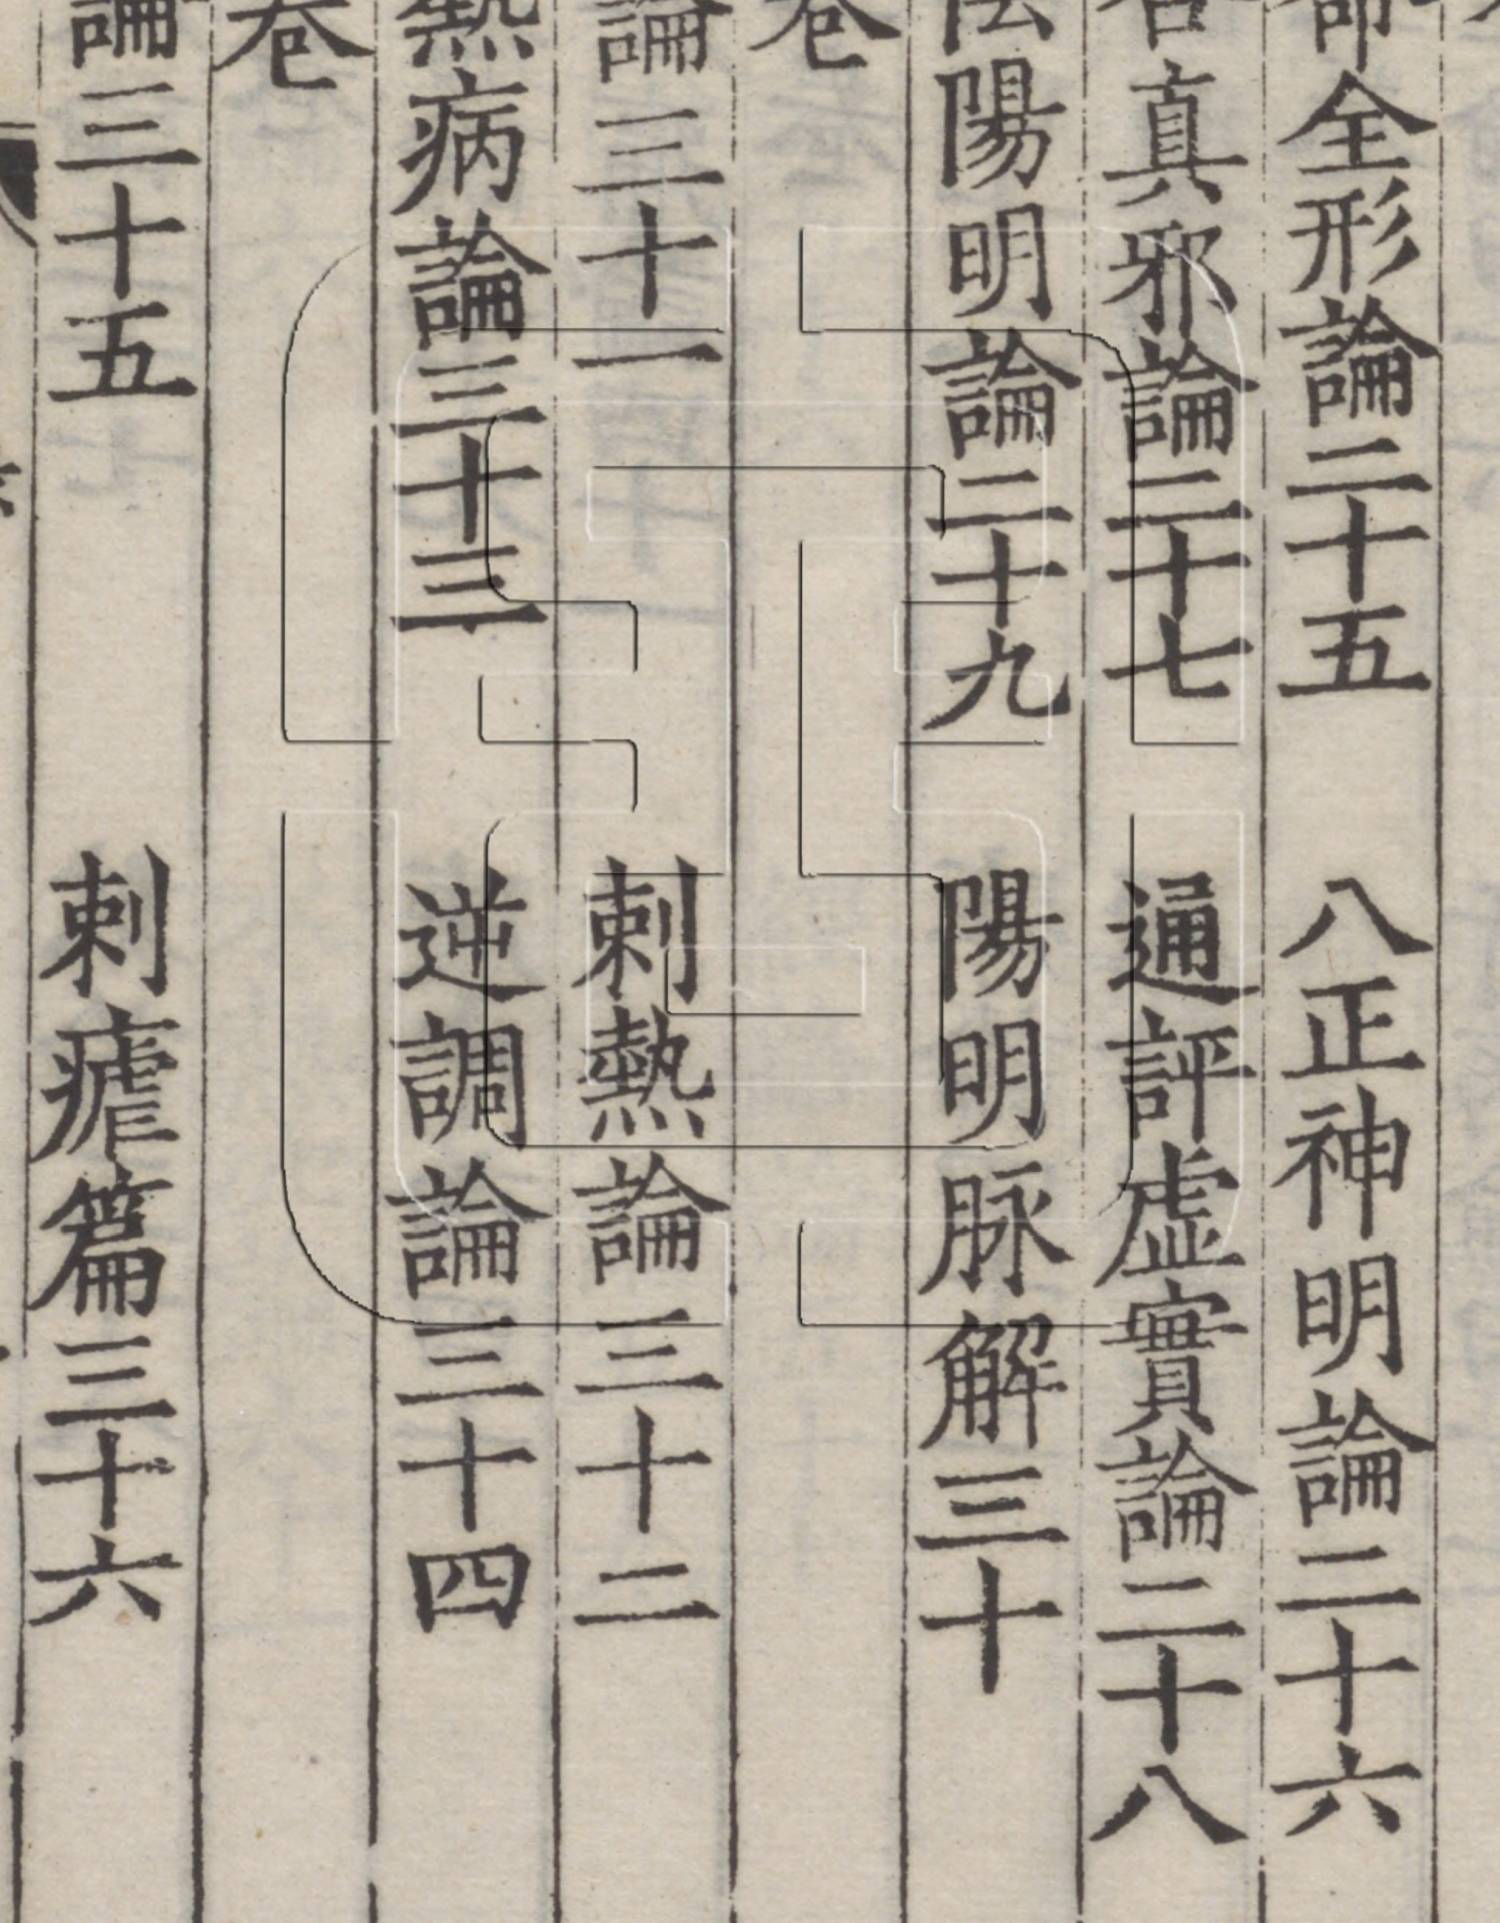 全形論二十五　八正神明論二十六
真邪論二十七　通評虛實論二十八
陽明論二十九　陽明脉解三十
卷
論三十一　刺熱論三十二
熱病論三十三　逆調論三十四
卷
論三十五　刺瘧篇三十六